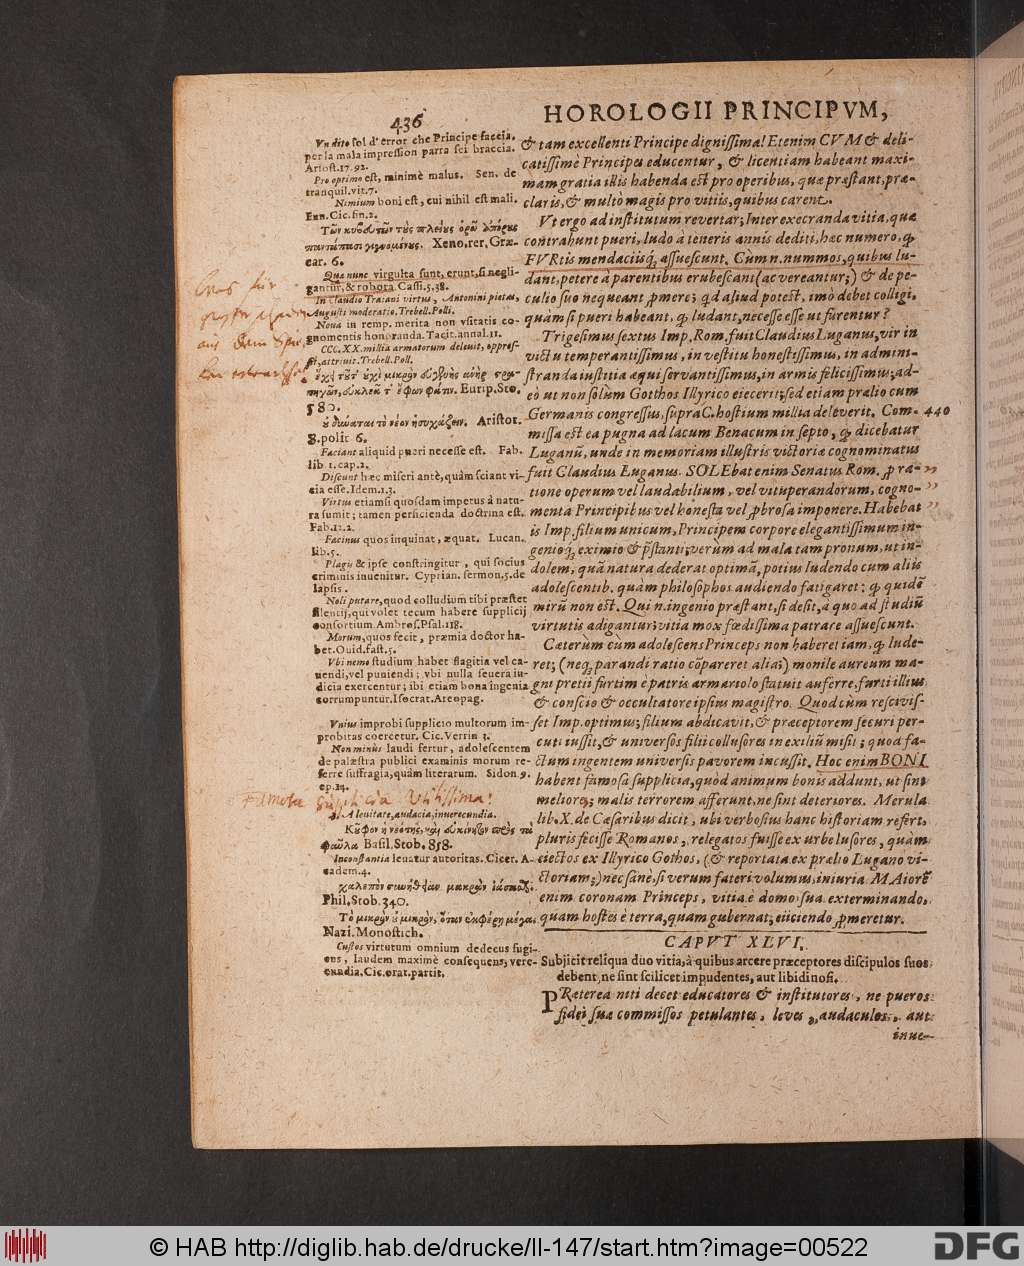 436
HOROLOGII PRINCIPVM,
Vn dito sol d'error che Principe faccia,
per la mala impression parra sei braccia.
Ariost. 17. 92.
Pro optimo est, minimè malus. Sen. de
tranquil. vit. 7.
Nimium boni est, cui nihil est mali.
Enn. Cic. fin. 2.
Xeno. rer. Græ-
car. 6.
Quæ nunc virgulta sunt, erunt, si negli-
gantur, & robora. Cassi. 5. 38.
In Claudio Traiani virtus, Antonini pietas,
Augusti moderatio. Trebell. Polli.
Noua in remp. merita non vsitatis co-
gnomentis honoranda. Tacit. annal. 11.
CCC. XX. millia armatorum deleuit, oppres-
sit, attriuit. Trebell. Poll.
Eurip. Sto.
580.
ὐ δύναται τὸ νέον ἡσυχάζειν. Aristot.
8. polit 6.
Faciant aliquid pueri necesse est. Fab.
lib 1. cap. 2.
Discunt hæc miseri antè, quàm sciant vi-
cia esse. Idem. 1. 3.
Virtus etiamsi quosdam impetus à natu-
ra sumit; tamen perficienda doctrina est.
Fab. 12. 2.
Facinus quos inquinat, æquat. Lucan.
lib. 5.
Plagis & ipse constringitur, qui socius
criminis inuenitur. Cyprian. sermon. 5. de
lapsis.
Noli putare, quod colludium tibi præstet
silentij, qui volet tecum habere supplicij
consortium. Ambros. Psal. 118.
Morum, quos fecit, præmia doctor ha-
bet. Ouid. fast. 5.
Vbi nemo studium habet flagitia vel ca-
uendi, vel puniendi; vbi nulla seuera iu-
dicia exercentur; ibi etiam bona ingenia
corrumpuntur. Isocrat. Areopag.
Vnius improbi supplicio multorum im-
probitas coercetur. Cic. Verrin 3.
Non minùs laudi fertur, adolescentem
de palæstra publici examinis morum re-
ferre suffragia, quàm literarum. Sidon. 9.
ep. 14.
Famosa supplicia Vtilissima!
A leuitate, audacia, inuerecundia.
Basil. Stob. 858.
Inconstantia leuatur autoritas. Cicer. A-
cadem. 4.
Phil. Stob. 340.
Nazi. Monostich.
Custos virtutum omnium dedecus fugi-
ens, laudem maximè consequens, vere-
cundia. Cic. orat. partit.
& tam excellenti Principe dignissima! Etenim CVM & deli-
catissimè Principes educentur, & licentiam habeant maxi-
mam gratia illis habenda est pro operibus, quæ præstant, præ-
claris, & multò magis pro vitiis, quibus carent.
Vt ergo ad institutum revertar; Inter execranda vitia, quæ
contrahunt pueri, ludo à teneris annis dediti, hæc numero, ꝙ
FVRtis mendaciisq́; assuescunt. Cùm n. nummos, quibus lu-
dant, petere à parentibus erubescant (ac vereantur;) & de pe-
culio suo nequeant ꝓmere; qd aliud potest, imò debet colligi,
quàm si pueri habeant, ꝙ ludant, necesse esse ut furentur?
Trigesimus sextus Imp. Rom. fuit Claudius Luganus, vir in
victu temperantissimus, in vestitu honestissimus, in admini-
stranda iustitia æqui servantissimus, in armis felicissimus; ad-
eò ut non solùm Gotthos Illyrico eiecerit; sed etiam prælio cum
Germanis congressus, supra C. hostium millia deleverit. Com-
440
missa est ea pugna ad lacum Benacum in septo, ꝙ dicebatur
Luganū, unde in memoriam illustris victoriæ cognominatus
fuit Claudius Luganus. SOLEbat enim Senatus Rom. ꝓ ra-
tione operum vel laudabilium, vel vituperandorum, cogno-
menta Principibus vel honesta vel ꝓbrosa imponere. Habebat
is Imp. filium unicum, Principem corpore elegantissimum in-
genioq́; eximio & p̄stanti; verùm ad mala tam pronum, ut in-
dolem, quā natura dederat optimā, potius ludendo cum aliis
adolescentib. quàm philosophos audiendo fatigaret: ꝙ quidē
mirū non est. Qui n. ingenio præstant, si desit, à quo ad studiū
virtutis adigantur; vitia mox fœdissima patrare assuescunt.
Cæterùm cùm adolescens Princeps non haberet iam, ꝙ lude-
ret; (neq; parandi ratio cōpareret alia;) monile aureum ma-
gni pretii furtim è patris armariolo statuit auferre, furti illius
& conscio & occultatore ipsius magistro. Quod cùm rescivis-
set Imp. optimus; filium abdicavit, & præceptorem securi per-
cuti iussit, & universos filii collusores in exilium misit; quod fa-
ctum ingentem universis pavorem incussit. Hoc enim BONI
habent famosa supplicia, quòd animum bonis addunt, ut sint
meliores; malis terrorem afferunt, ne sint deteriores. Merula
lib. X. de Cæsaribus dicit, ubi verbosius hanc historiam refert,
pluris fecisse Romanos, relegatos fuisse ex urbe lusores, quàm
eiectos ex Illyrico Gothos, (& reportata ex prælio Lugano vi-
ctoriam;) nec sanè, si verum fateri volumus, iniuria. MAiorē
enim coronam Princeps, vitia è domo sua exterminando,
quam hostes è terra, quam gubernat, eiiciendo ꝓmeretur.
CAPVT XLVI.
Subjicit reliqua duo vitia, à quibus arcere præceptores discipulos suos
debent, ne sint scilicet impudentes, aut libidinosi.
PRæterea niti decet educatores & institutores, ne pueros
fidei suæ commissos petulantes, leves, audaculos, aut
inue-
© HAB http://diglib.hab.de/drucke/ll-147/start.htm?image=00522
DFG